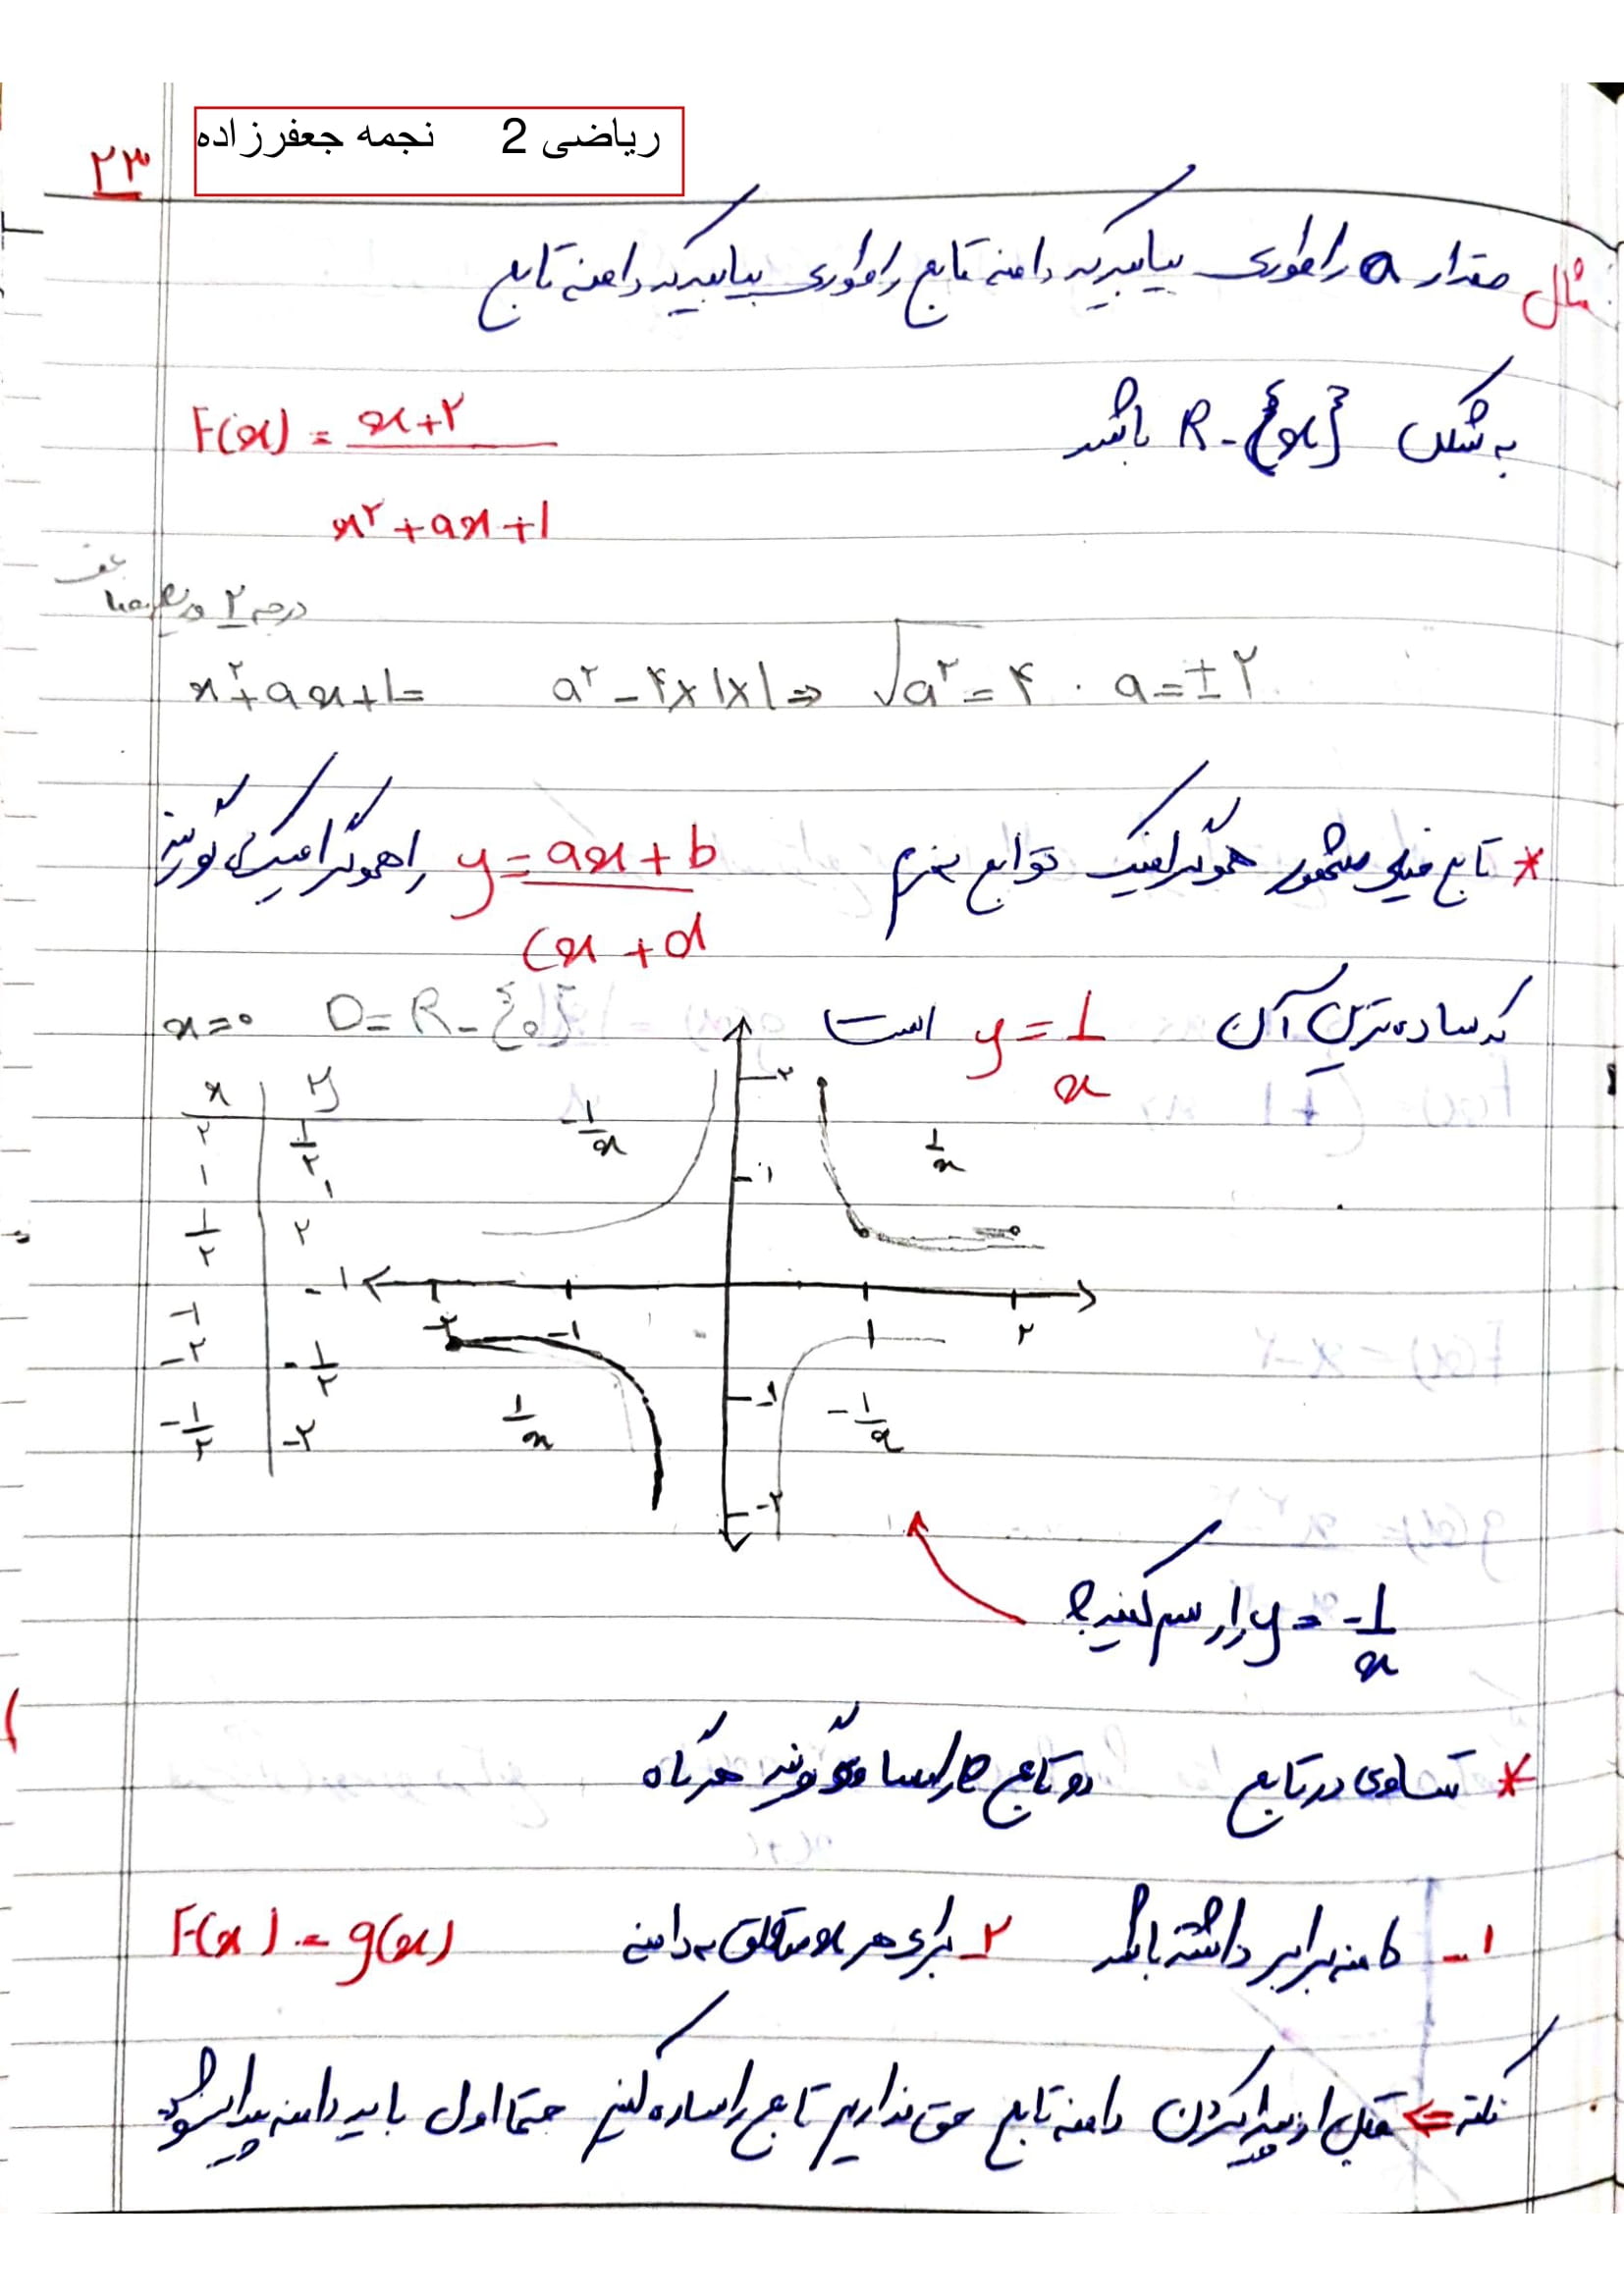 ریاضی 2 نجمه جعفرزاده
۲۳
مثال مقدار a را طوری بیابید که دامنه تابع را طوری بیابید که دامنه تابع
به شکل R-{x} باشد F(x) = x+۲
x^۲+ax+1
درجه ۲
x^۲+ax+1= a^۲-۴×1×1 ⇒ √a^۲=۴ . a=±۲
* تابع خیلی مشهور هموگرافیک توابع بفرم y=ax+b را هموگرافیک گویند
cx+d
که ساده ترین آن y=1/x است D=R-{0} x=0
x y
۲ 1/۲
1 1
1/۲ ۲
-1 -1
-۲ -1/۲
-1/۲ -۲
-1/x 1/x
۲
1
-۲ -1 1 ۲
-1
-۲
1/x -1/x
y=-1/x را رسم کنید؟
* تساوی در تابع دو تابع را مساوی گویند هرگاه
1- دامنه برابر داشته باشد ۲- برای هر x متعلق به دامنه F(x) = g(x)
نکته ⇐ قبل از پیدا کردن دامنه تابع حق نداریم تابع را ساده کنیم حتما اول باید دامنه پیدا شود